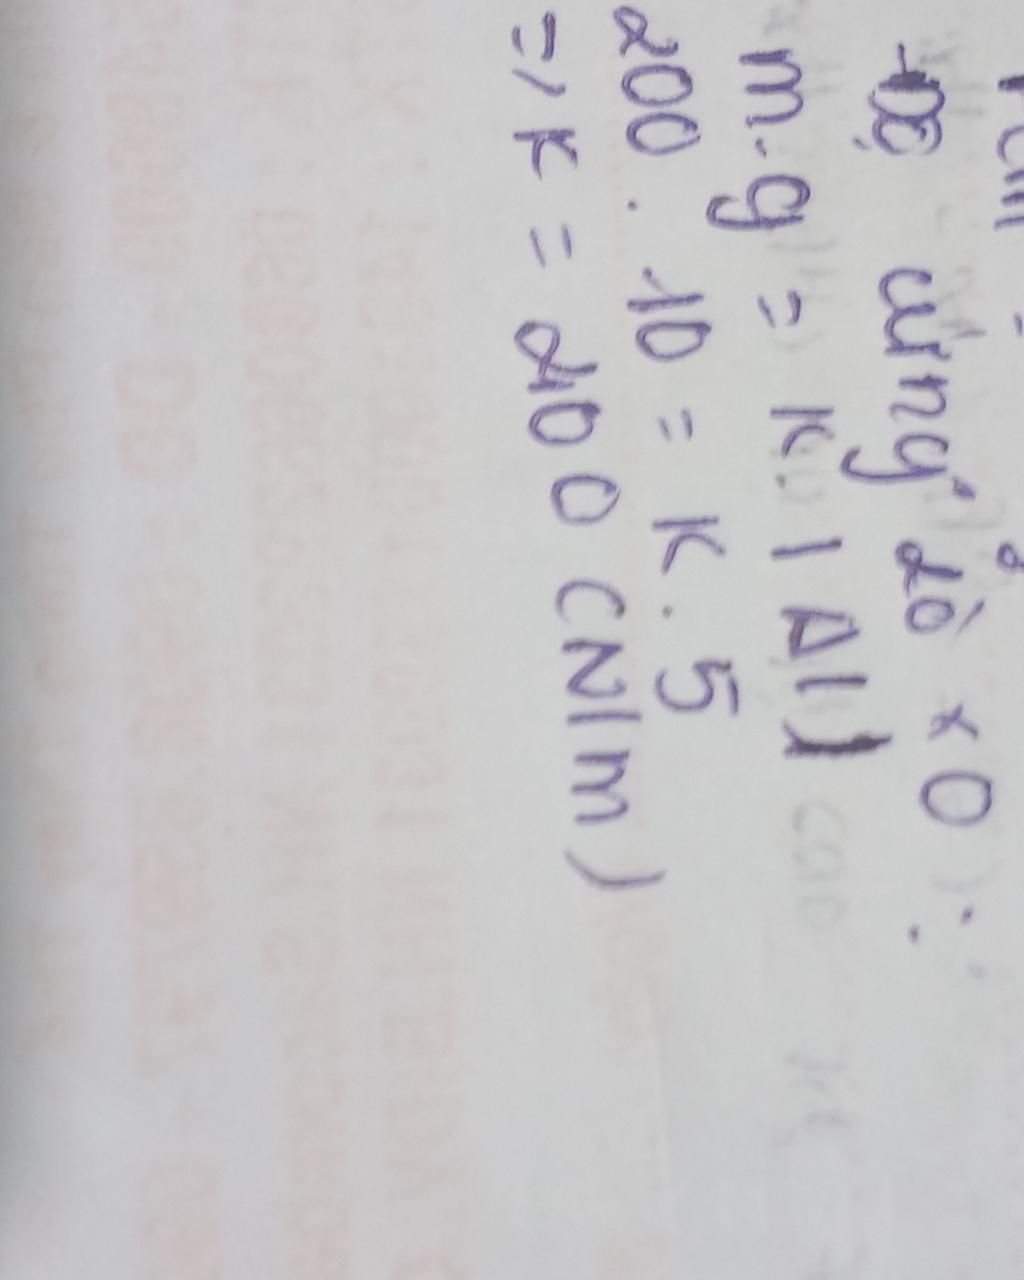 ứng lò xo:
m.g = k.|Δl|
200.10 = k.5
=> k = 400 (N/m)